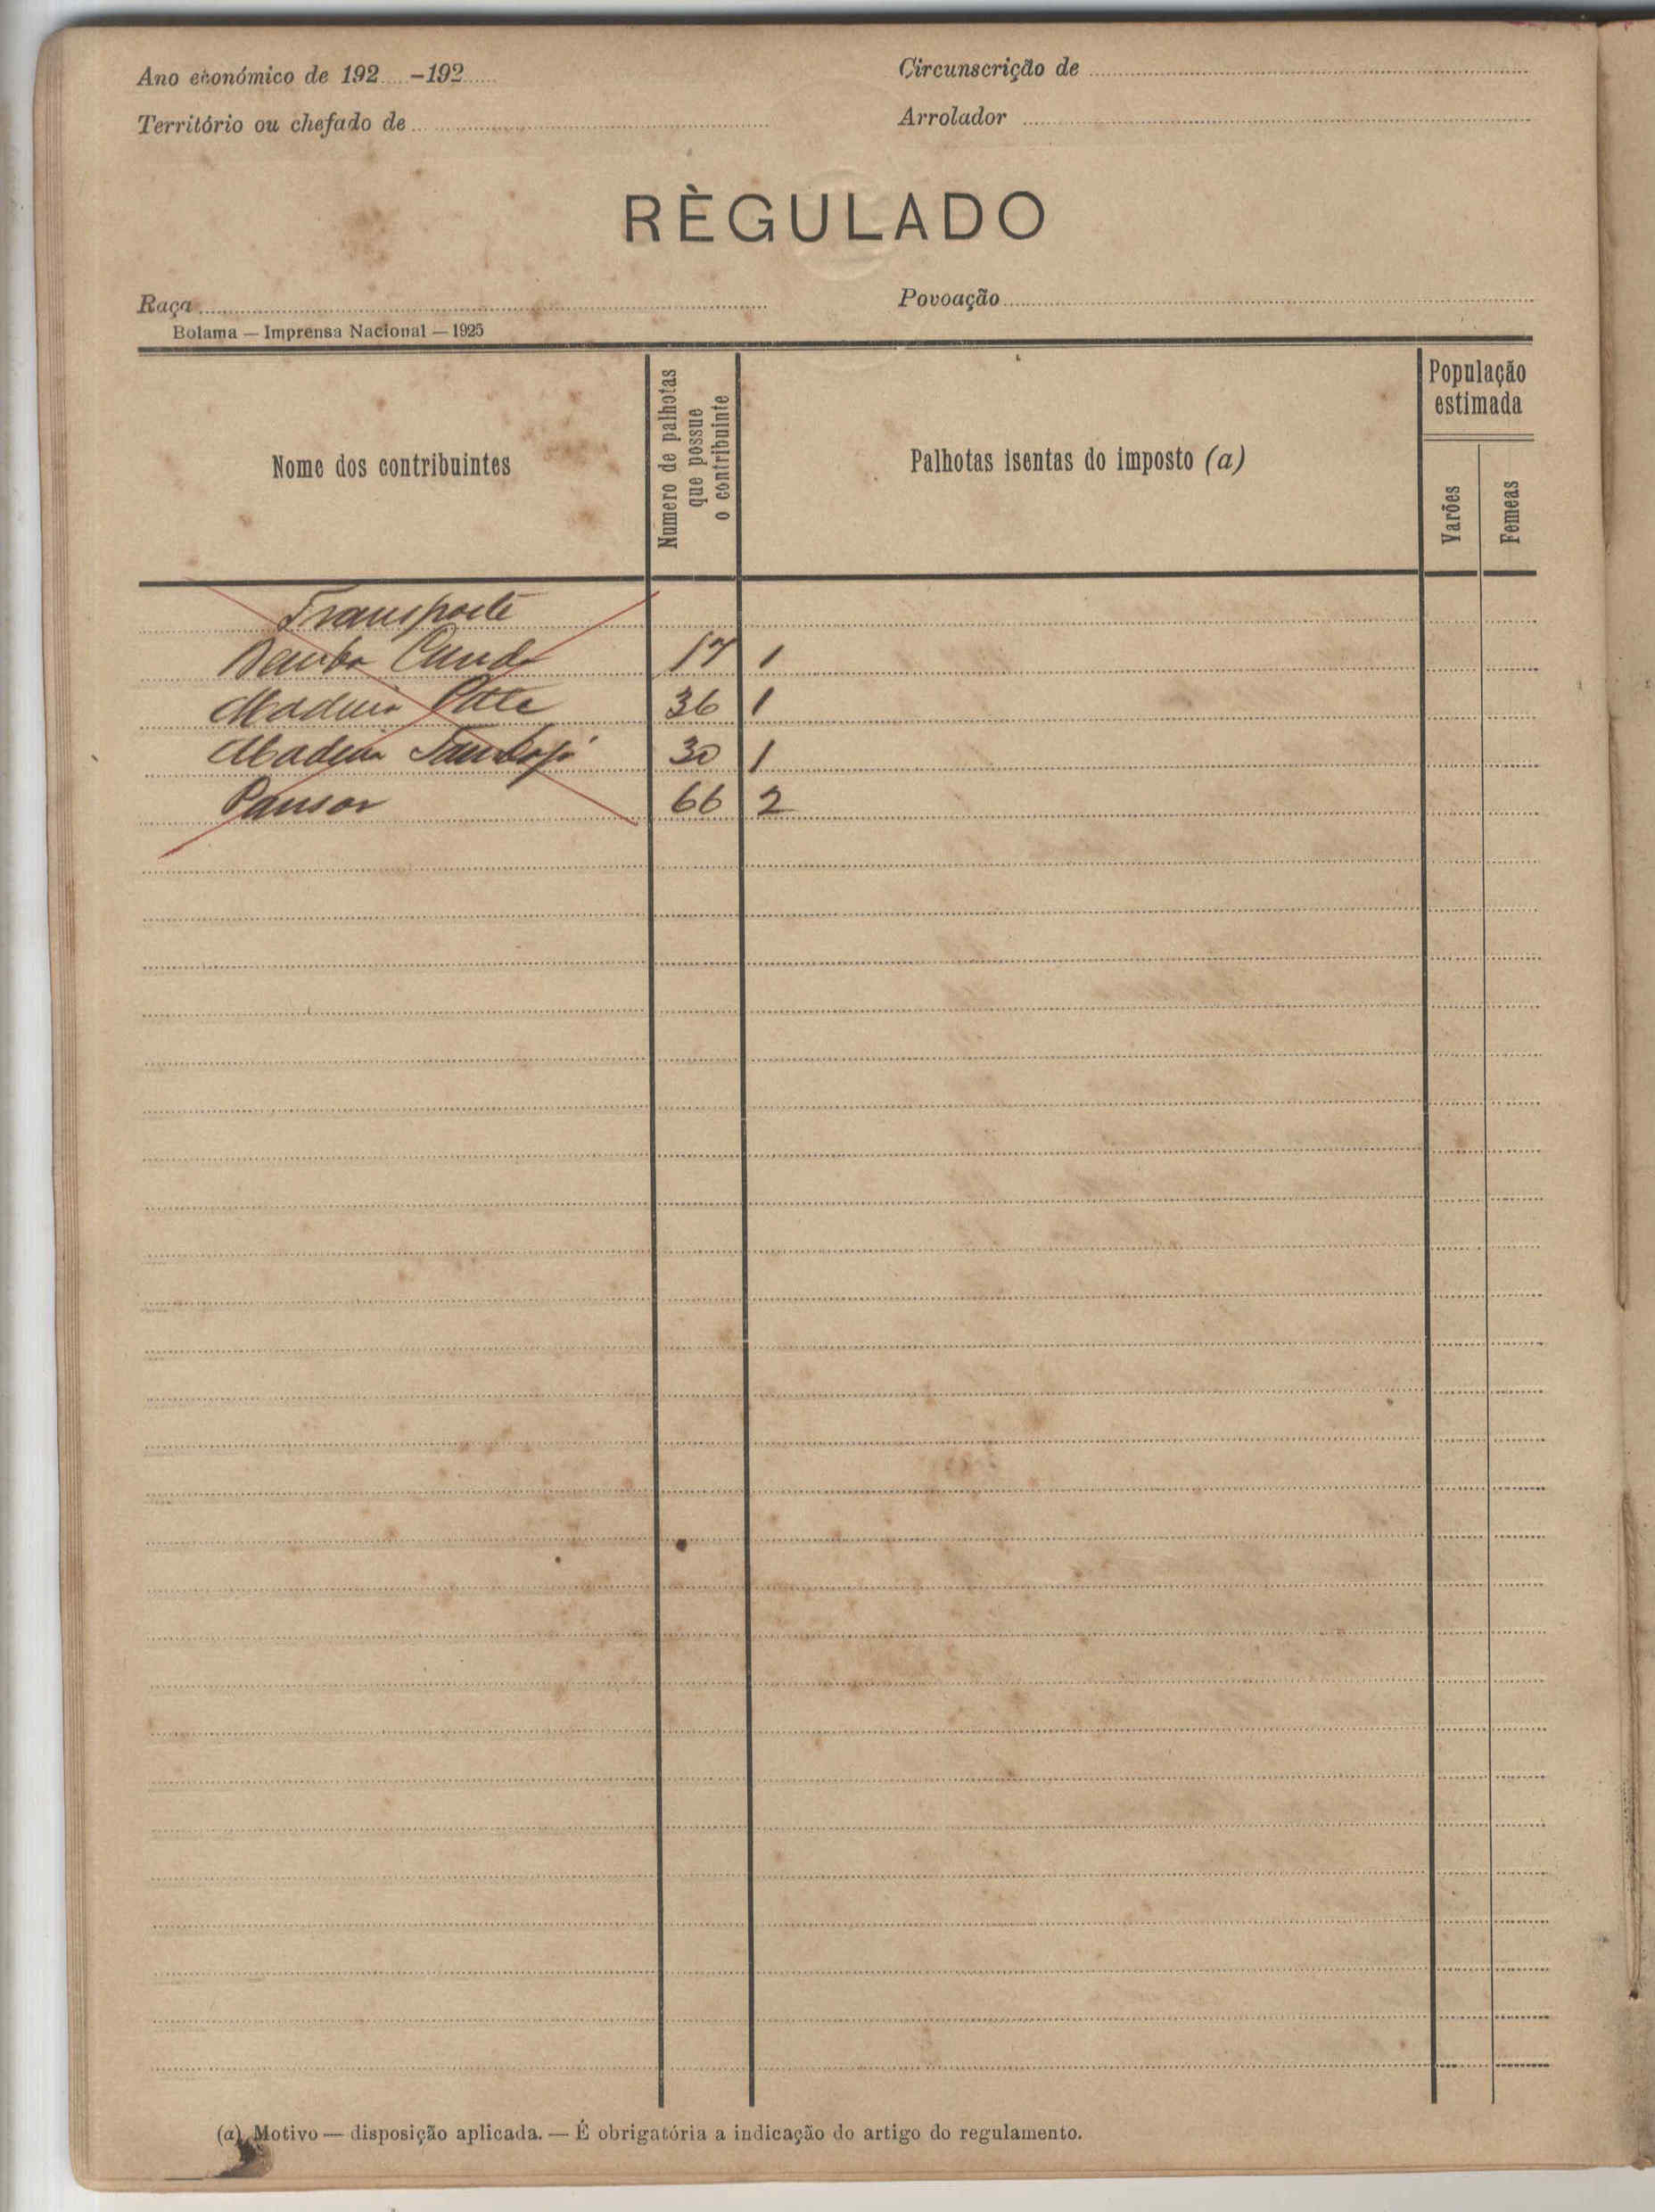 Ano económico de 192.....-192......
Circunscrição de
Território ou chefado de
Arrolador
RÈGULADO
Raça
Povoação
Bolama — Imprensa Nacional — 1925
Nome dos contribuintes
Numero de palhotas que possue o contribuinte
Palhotas isentas do imposto (a)
População estimada
Varões
Femeas
Transporte
Samba Cunda 17 1
Madina 36 1
Madina 30 1
Pansor 66 2
(a) Motivo — disposição aplicada. — É obrigatória a indicação do artigo do regulamento.